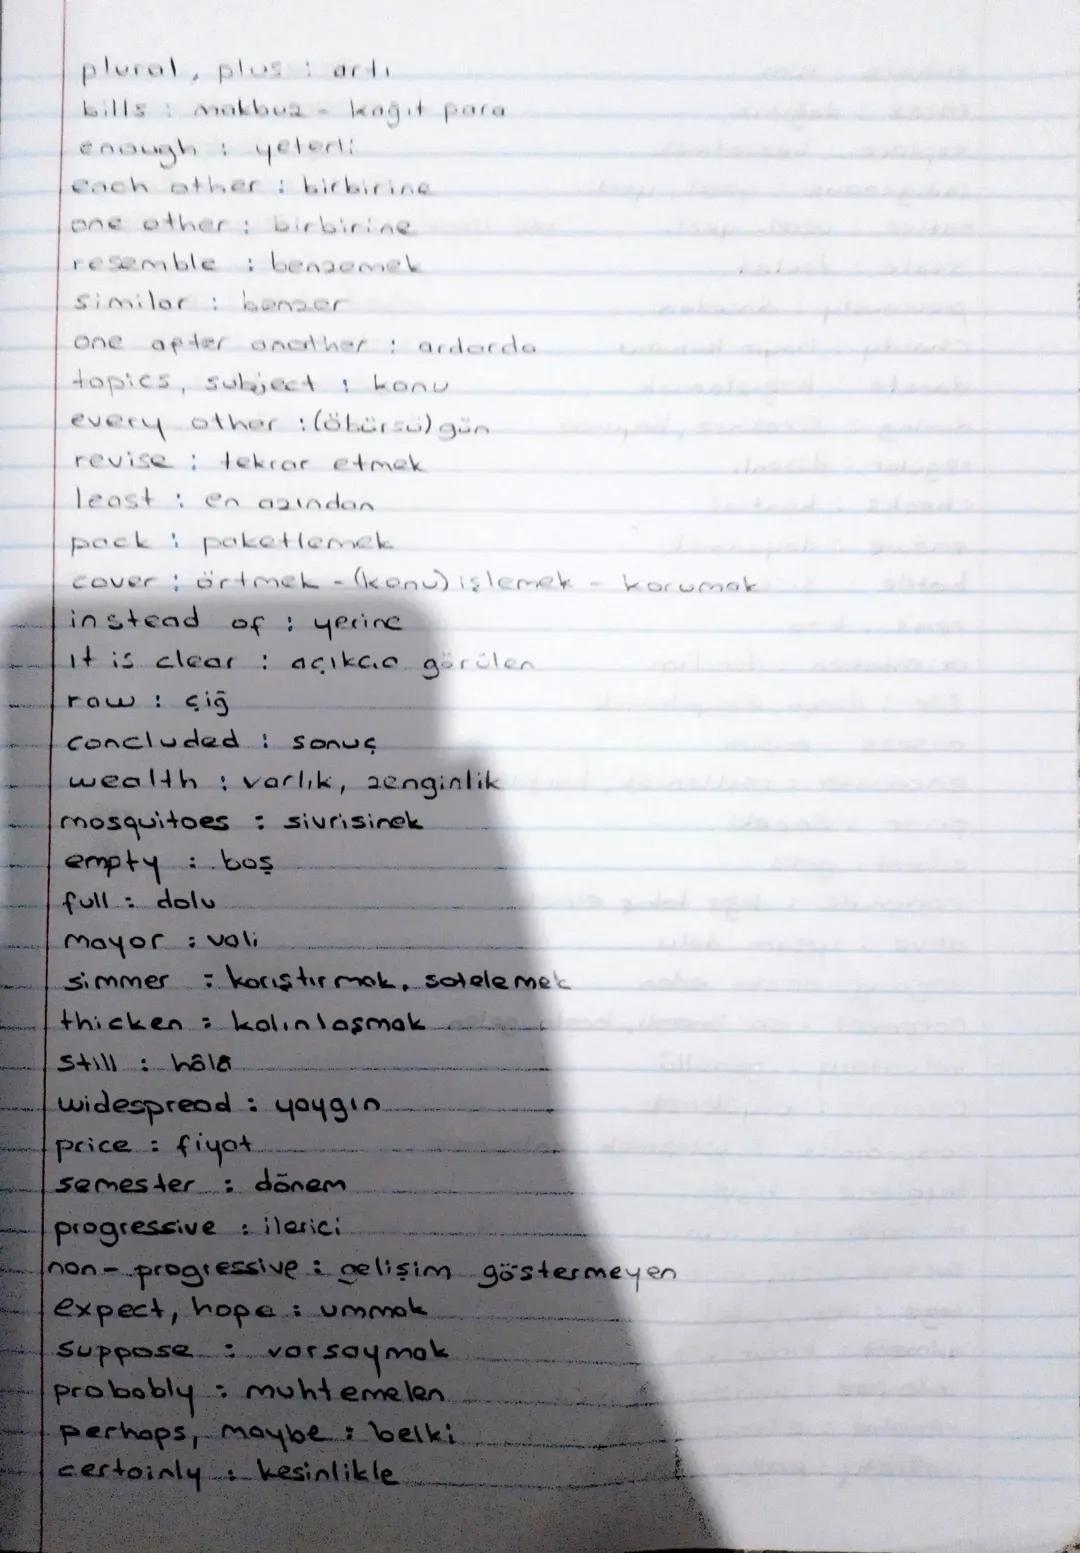 plural, plus : artı
bills : makbuz - kağıt para
enough : yeterli
each other : birbirine
one other : birbirine
resemble : benzemek
similar : benzer
one apter another : ardarda
topics, subject : konu
every other : (öbürsü) gün
revise : tekrar etmek
least : en azından
pack : paketlemek
cover : örtmek - (konu) işlemek - korumak
instead of : yerine
it is clear : açıkca görülen
raw : çiğ
concluded : sonuç
wealth : varlık, zenginlik
mosquitoes : sivrisinek
empty : boş
full : dolu
mayor : vali
simmer : karıştırmak, sotelemek
thicken : kalınlaşmak
still : hâlâ
widespread : yaygın
price : fiyat
semester : dönem
progressive : ilerici
non-progressive : gelişim göstermeyen
expect, hope : ummak
suppose : varsaymak
probably : muhtemelen
perhaps, maybe : belki
certainly : kesinlikle